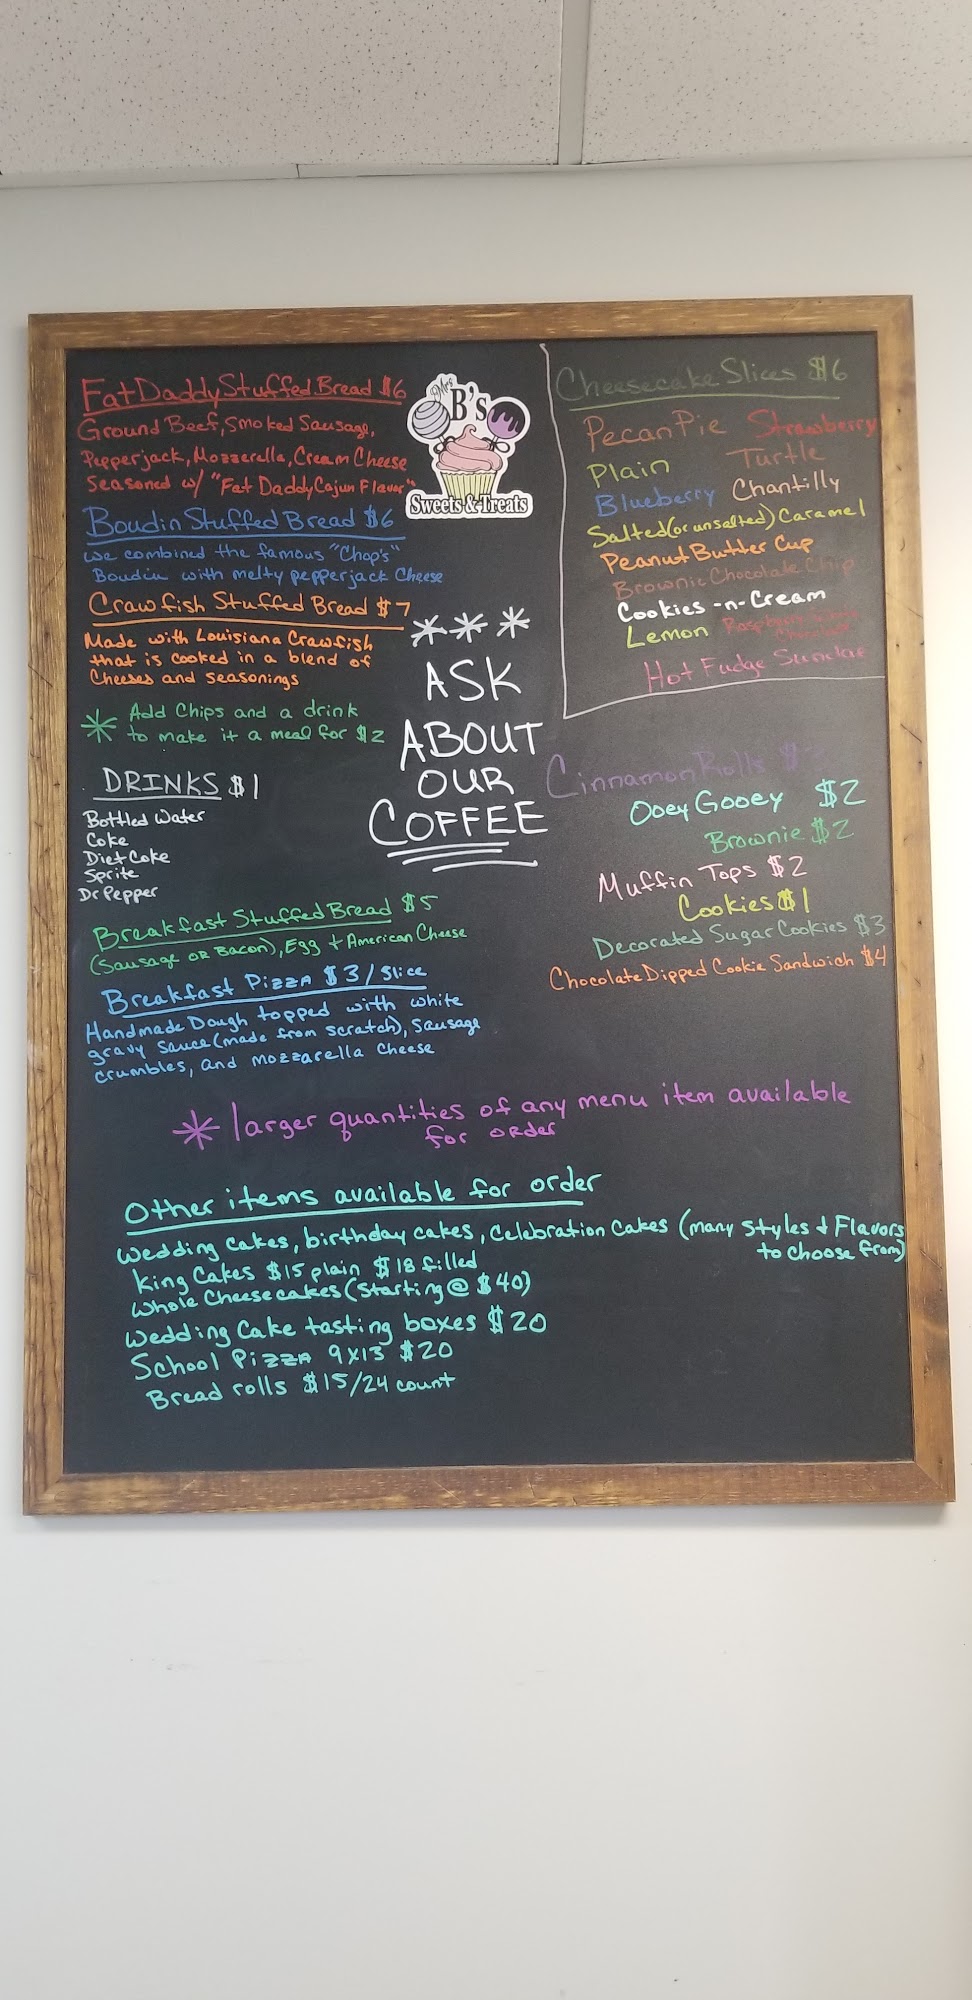 Fat Daddy Stuffed Bread $6
Ground Beef, Smoked Sausage,
Pepperjack, Mozzerella, Cream Cheese
Seasoned w/ "Fat Daddy Cajun Flavor"
Boudin Stuffed Bread $6
we combined the famous "Chop's"
Boudin with melty pepperjack Cheese
Crawfish Stuffed Bread $7
Made with Louisiana Crawfish
that is cooked in a blend of
Cheeses and seasonings
* Add Chips and a drink
to make it a meal for $2
DRINKS $1
Bottled Water
Coke
Diet Coke
Sprite
Dr Pepper
Breakfast Stuffed Bread $5
(Sausage OR Bacon), Egg + American Cheese
Breakfast Pizza $3/Slice
Handmade Dough topped with white
gravy sauce (made from scratch), sausage
crumbles, and mozzarella cheese
Mrs
B's
Sweets & Treats
***
ASK
ABOUT
OUR
COFFEE
Cheesecake Slices $6
Pecan Pie Strawberry
Plain Turtle
Blueberry Chantilly
Salted (or unsalted) Caramel
Peanut Butter Cup
Brownie Chocolate Chip
Cookies -n- Cream
Lemon Raspberry White
Chocolate
Hot Fudge Sundae
Cinnamon Rolls $
Ooey Gooey $2
Brownie $2
Muffin Tops $2
Cookies $1
Decorated Sugar Cookies $3
Chocolate Dipped Cookie Sandwich $4
* larger quantities of any menu item available
for order
Other items available for order
Wedding cakes, birthday cakes, Celebration Cakes (many styles + Flavors
to choose from)
King Cakes $15 plain $18 filled
Whole Cheesecakes (starting @ $40)
Wedding Cake tasting boxes $20
School Pizza 9x13 $20
Bread rolls $15/24 count